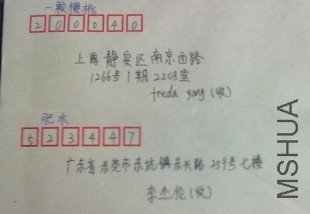 一颗樱桃
200040
上海静安区南京西路
1266号1期2208室
freda yang (收)
肥水
523447
广东省东莞市东坑镇东兴路259号七楼
李杰伦(收)
MSHUA